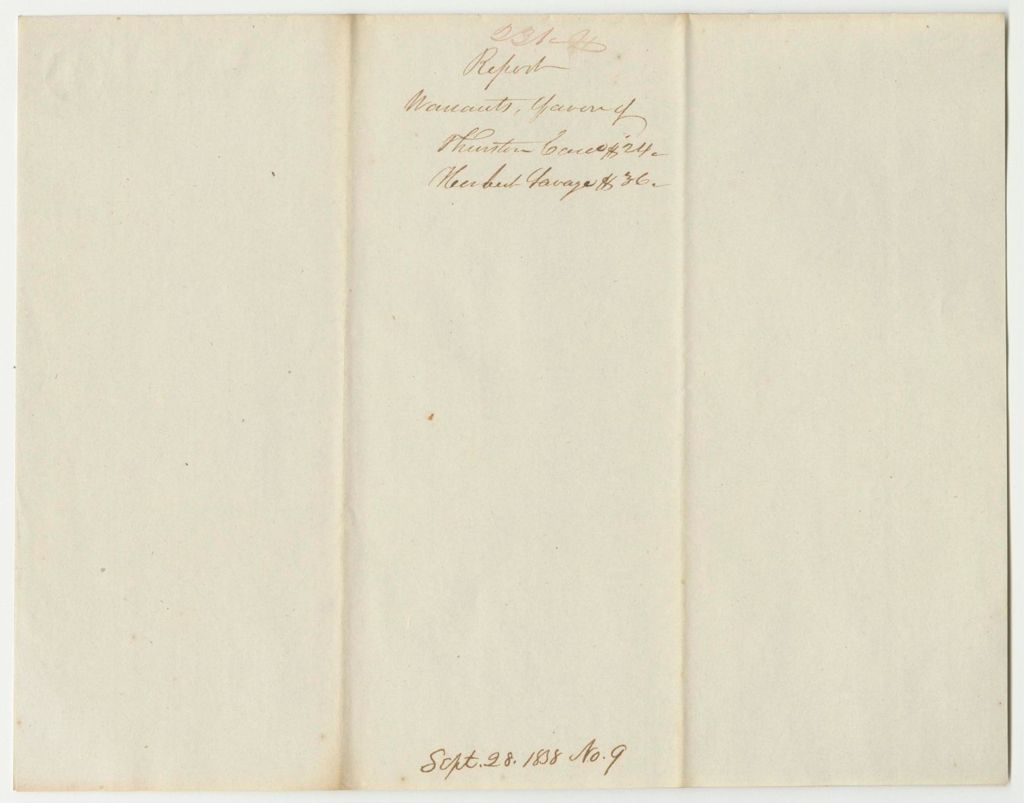 Report
Warrants, favor of
Thurston $24-
Herbert Savage $36-
Sept. 28. 1838 No. 9